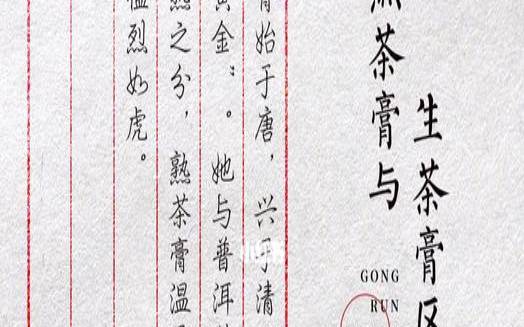 茶膏与
生茶膏区
GONG
RUN
始于唐，兴于清
金：。她与普洱
之分，熟茶膏温
烈如虎。